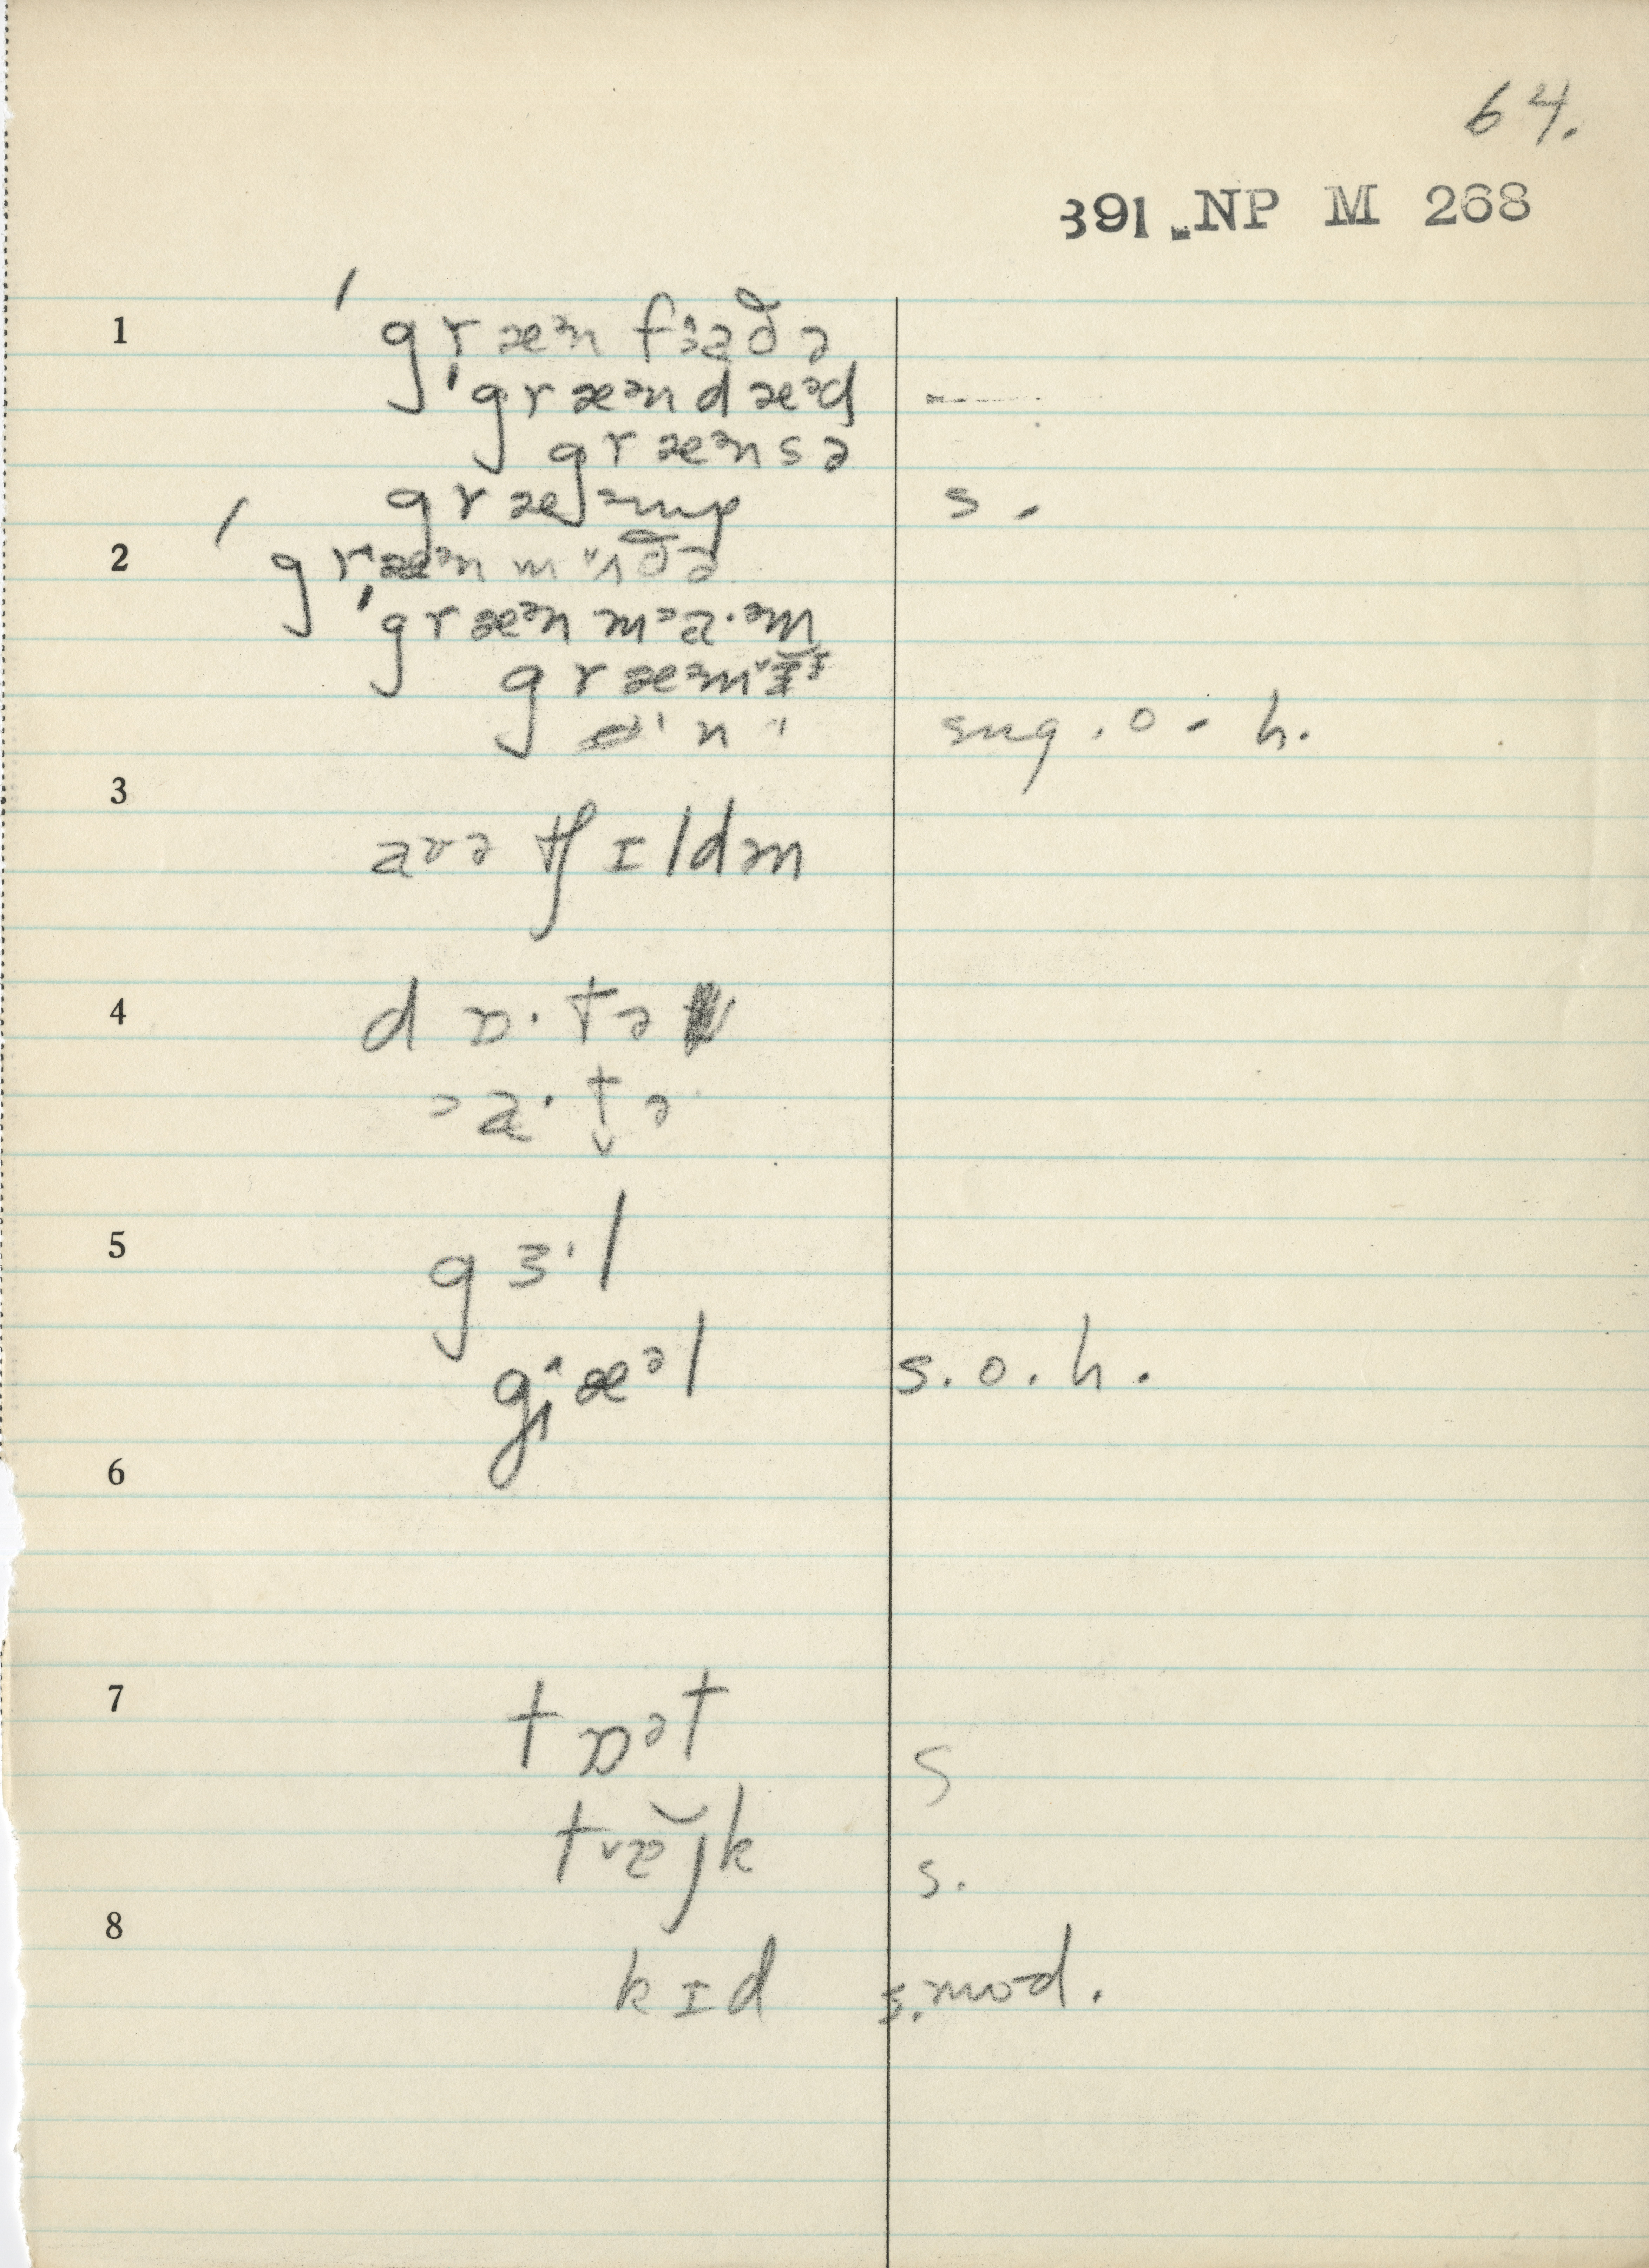 64.
391 NP M 268
1 ˈgræᵊn fɜaðə
ˈgræᵊndæᵊd
græᵊnsə
græᵊmp s.
2 ˈgræᵊn mʌðə
ˈgræᵊn mɔa·ᵊm
sug. o - h.
3
aʊə tʃɪldm
4 dɒ·tə
ɔa·t̬ə
5 gɜ·l
gjæᵊl s.o.h.
6
7 tɒᵊt S
k s.
8
kɪd s. mod.